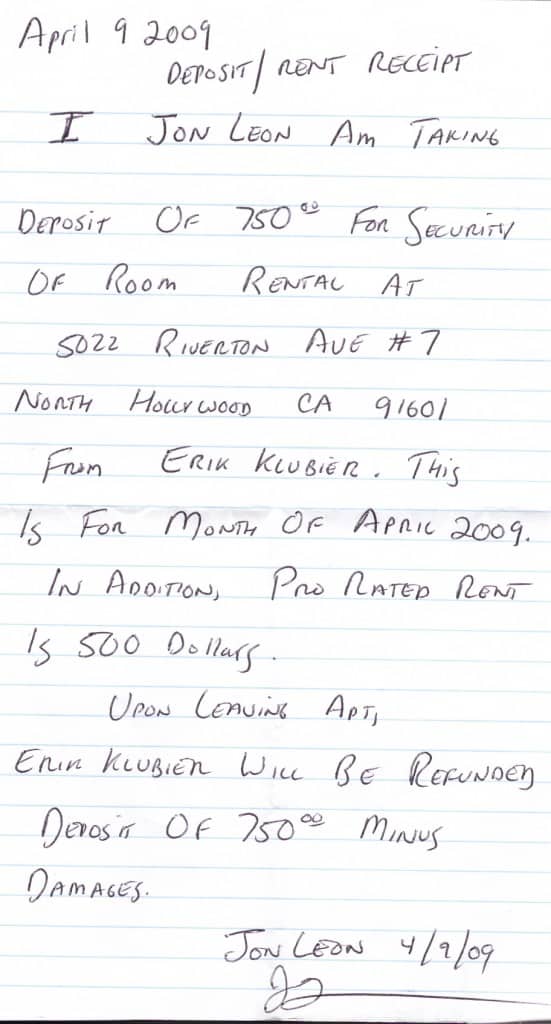 April 9 2009
DEPOSIT/ RENT RECEIPT
I JON LEON AM TAKING
DEPOSIT OF 750⁰⁰ FOR SECURITY
OF ROOM RENTAL AT
5022 RIVERTON AVE #7
NORTH HOLLYWOOD CA 91601
FROM ERIK KLUBIER. THIS
IS FOR MONTH OF APRIL 2009.
IN ADDITION, PRO RATED RENT
IS 500 Dollars.
UPON LEAVING APT,
ERIK KLUBIER WILL BE REFUNDED
DEPOSIT OF 750⁰⁰ MINUS
DAMAGES.
JON LEON 4/9/09